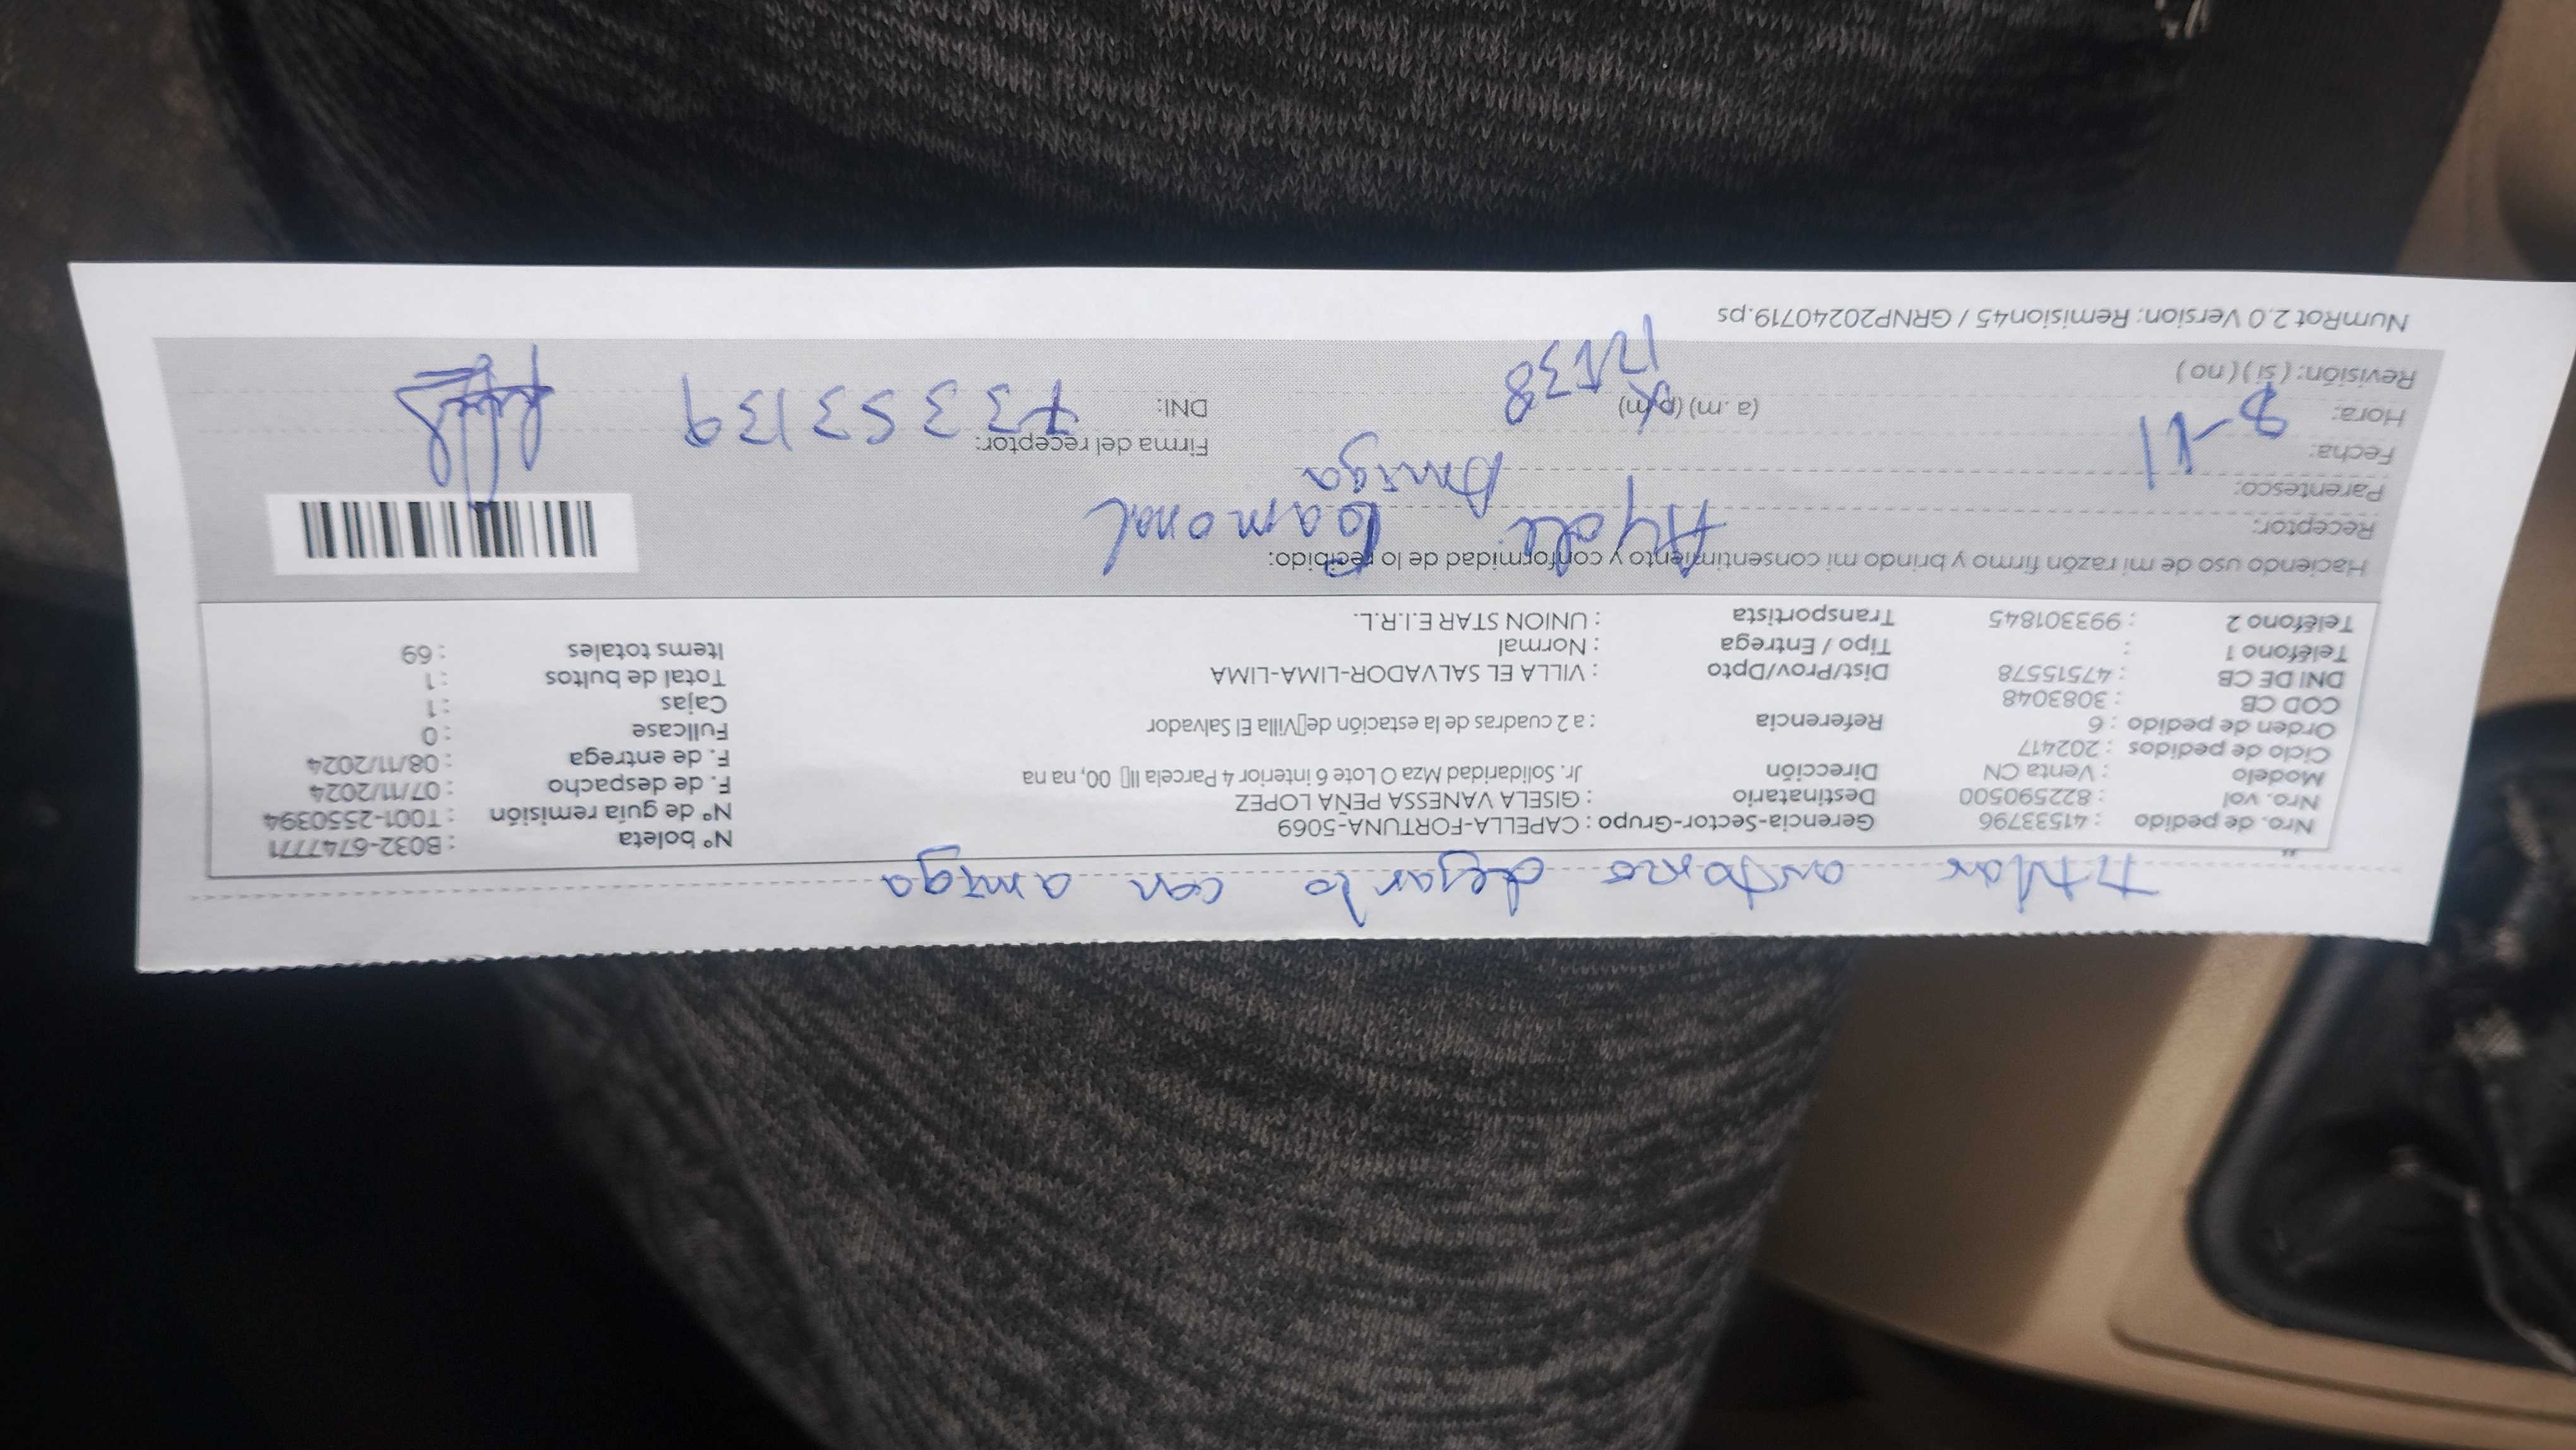 titular autorizo dejarlo con amiga
Nro. de pedido : 41533796 Gerencia-Sector-Grupo : CAPELLA-FORTUNA-5069 N° boleta : B032-6747771
Nro. vol : 822590500 Destinatario : GISELA VANESSA PEÑA LOPEZ N° de guía remisión : T001-2550394
Modelo : Venta CN Dirección Jr. Solidaridad Mza O Lote 6 interior 4 Parcela II 00, na na F. de despacho : 07/11/2024
Ciclo de pedidos : 202417 F. de entrega : 08/11/2024
Orden de pedido : 6 Referencia : a 2 cuadras de la estación de Villa El Salvador Fullcase : 0
COD CB : 3083048 Cajas : 1
DNI DE CB : 47515578 Dist/Prov/Dpto : VILLA EL SALVADOR-LIMA-LIMA Total de bultos : 1
Teléfono 1 : Tipo / Entrega : Normal Items totales : 69
Teléfono 2 : 993301845 Transportista : UNION STAR E.I.R.L.
Haciendo uso de mi razón firmo y brindo mi consentimiento y conformidad de lo recibido:
Receptor: Ayde
Parentesco: Amiga
Fecha: 8-11 Firma del receptor:
Hora: (a.m) (p.m) DNI: 73353139
Revisión: ( si ) ( no )
NumRot 2.0 Version: Remision45 / GRNP20240719.ps